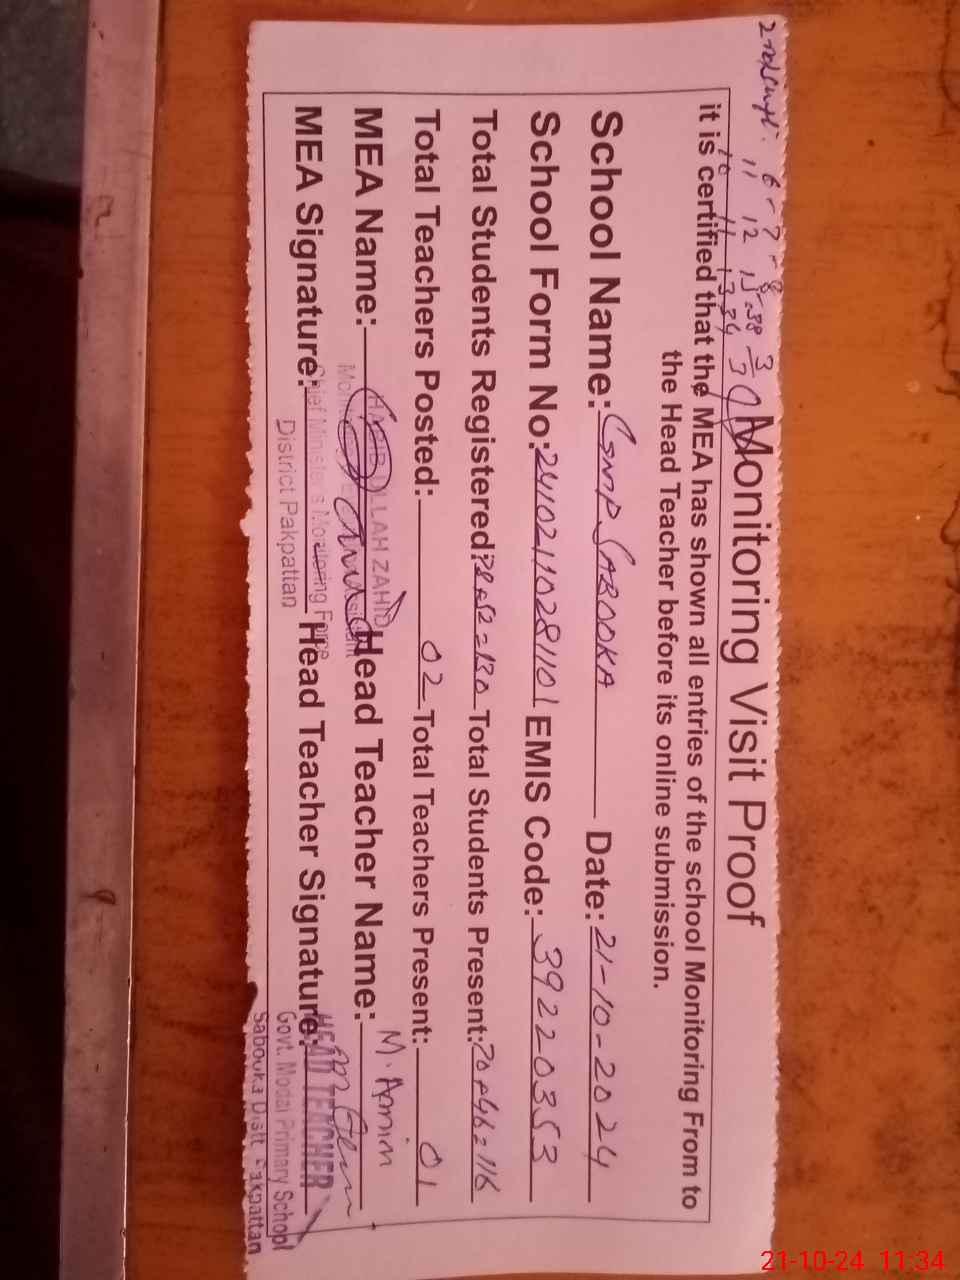 Monitoring Visit Proof
it is certified that the MEA has shown all entries of the school Monitoring From to
the Head Teacher before its online submission.
School Name: GMP SABOOKA Date: 21-10-2024
School Form No: 24102110281101 EMIS Code: 39220353
Total Students Registered: 78+52=130 Total Students Present: 70+46=116
Total Teachers Posted: 02 Total Teachers Present: 01
MEA Name: Head Teacher Name: M. Amin
HABIB ULLAH ZAHID
MEA Signature: Head Teacher Signature:
Chief Minister's Monitoring Force
District Pakpattan
HEAD TEACHER
Govt. Model Primary School
Sabouka Distt Pakpattan
21-10-24 11:34